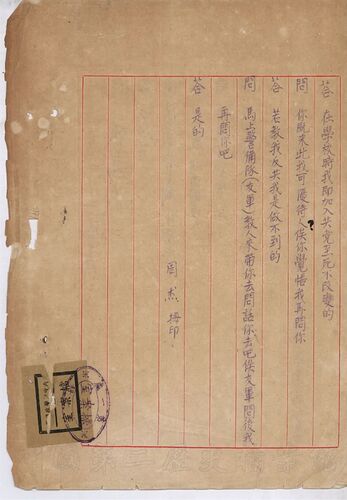 答 在學校時我即加入共黨至死不改變的
問 你既來此我可優待 俟你覺悟我再問你
答 若教我反共我是做不到的
問 馬上警備隊(友軍)教人來帶你去問話你去吧俟友軍問後我
再問你吧
答 是的
周杰 拇印